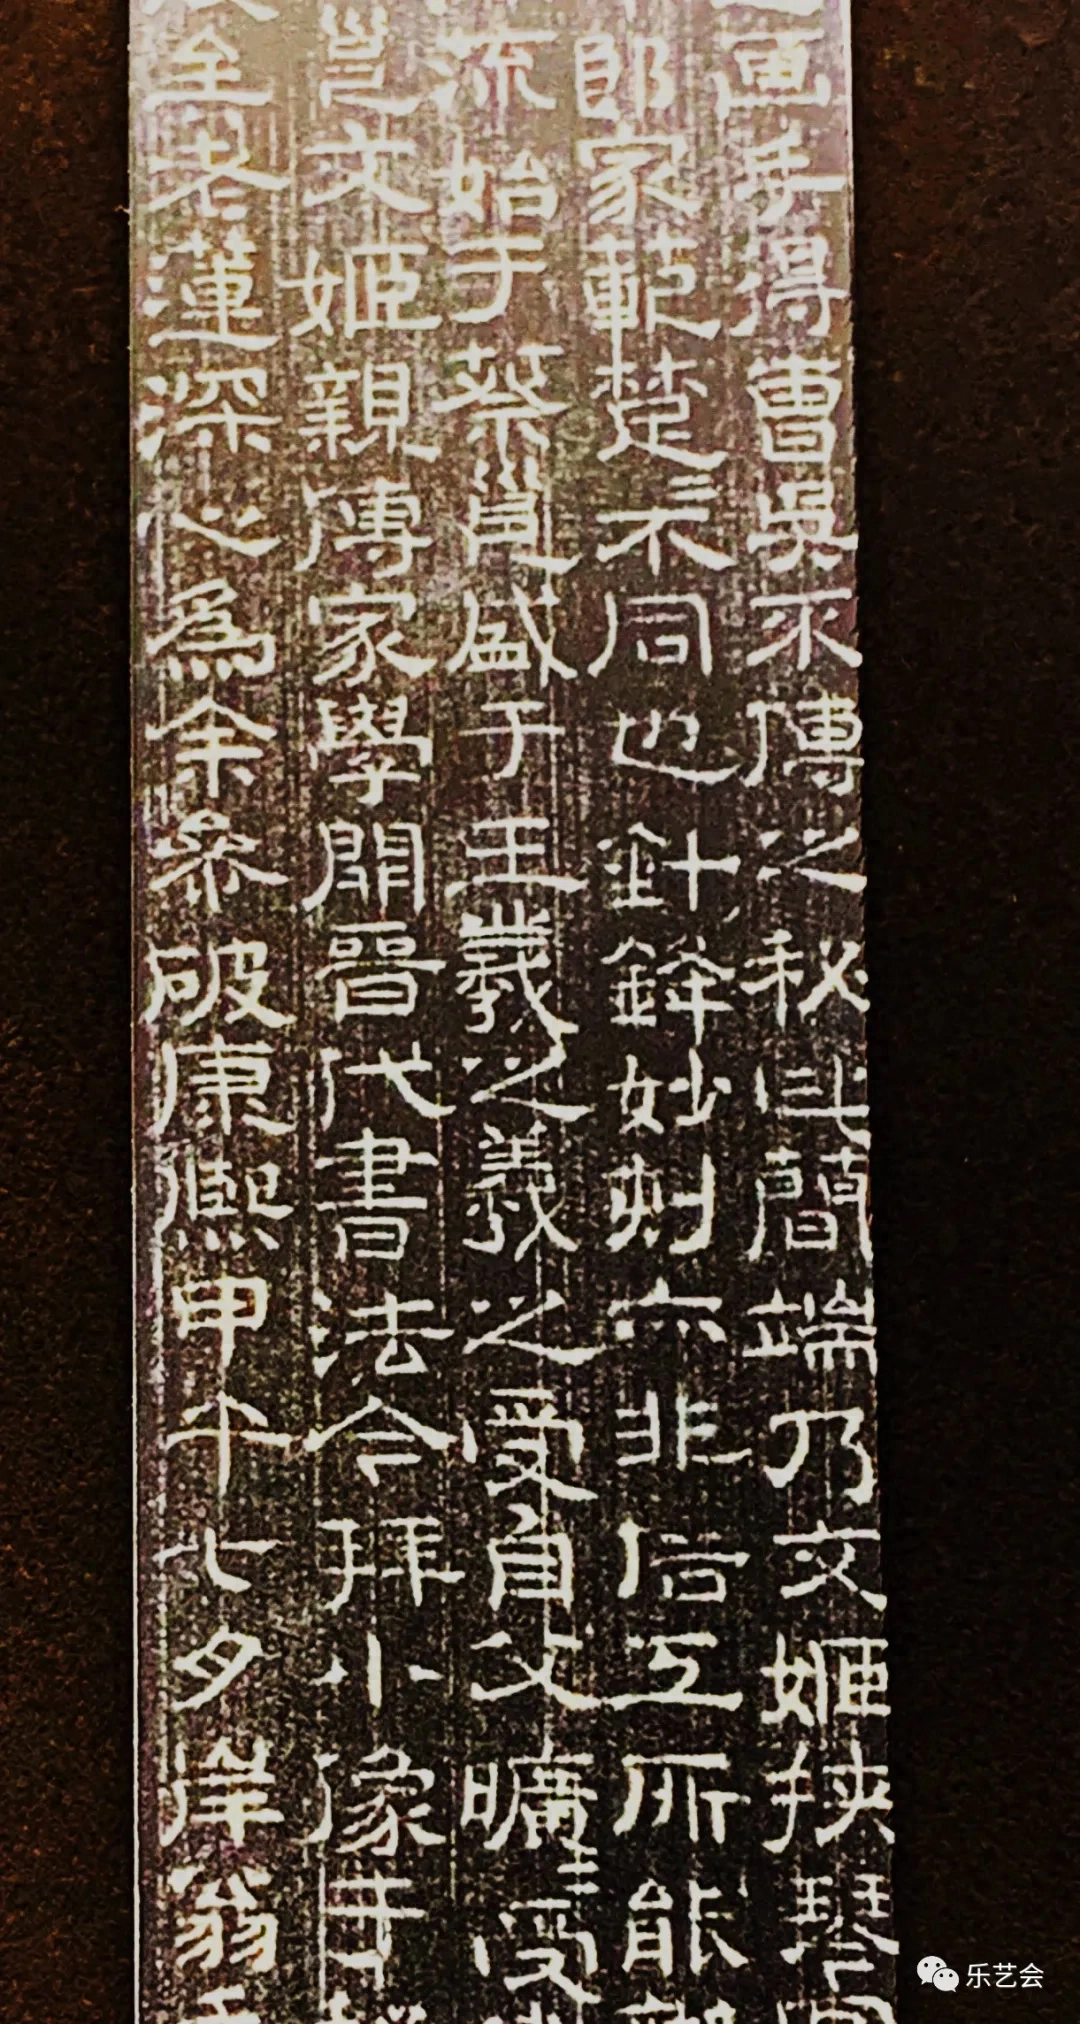 画手得曹吳不傳之秘此簡端乃文姬挾琴圖
郎家範楚不同也針鋒妙刺亦非俗工所能
流始于蔡邕盛于王羲之羲之受自父曠曠受
邕文姬親傳家學開晉代書法今拜小像手
全老蓮深心為余參破康熙甲午七夕岸翁
乐艺会